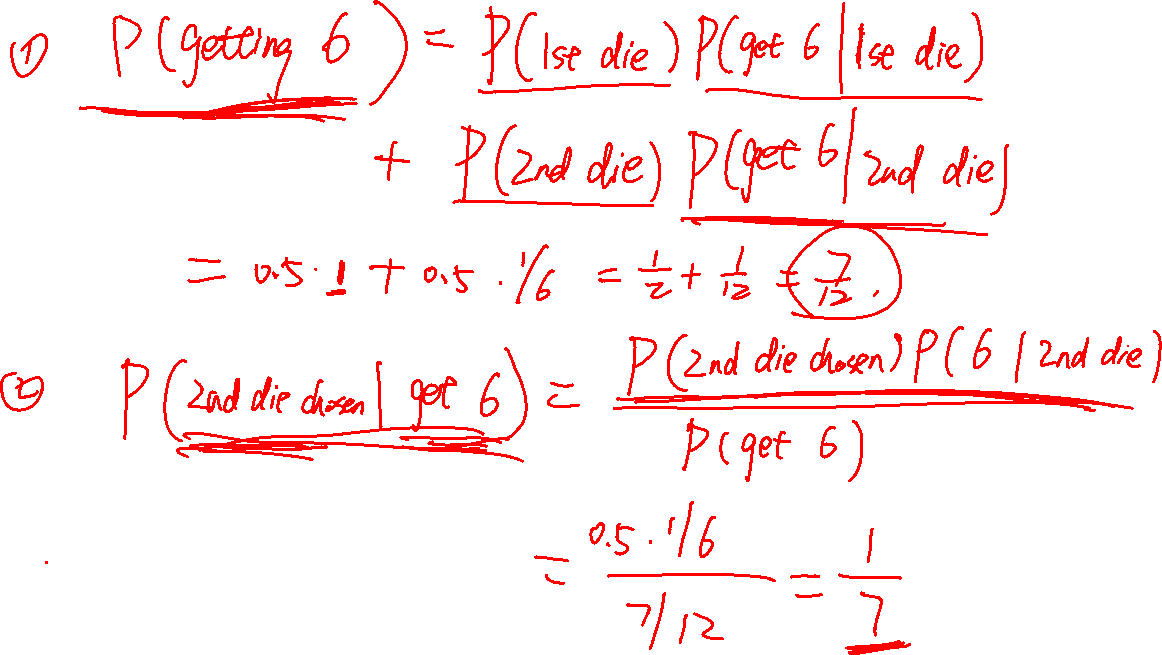 ① P(getting 6) = P(1st die) P(get 6 | 1st die)
+ P(2nd die) P(get 6 | 2nd die)
= 0.5 · 1 + 0.5 · 1/6 = 1/2 + 1/12 = 7/12.
② P(2nd die chosen | get 6) = P(2nd die chosen) P(6 | 2nd die)
P(get 6)
= 0.5 · 1/6 / 7/12 = 1/7